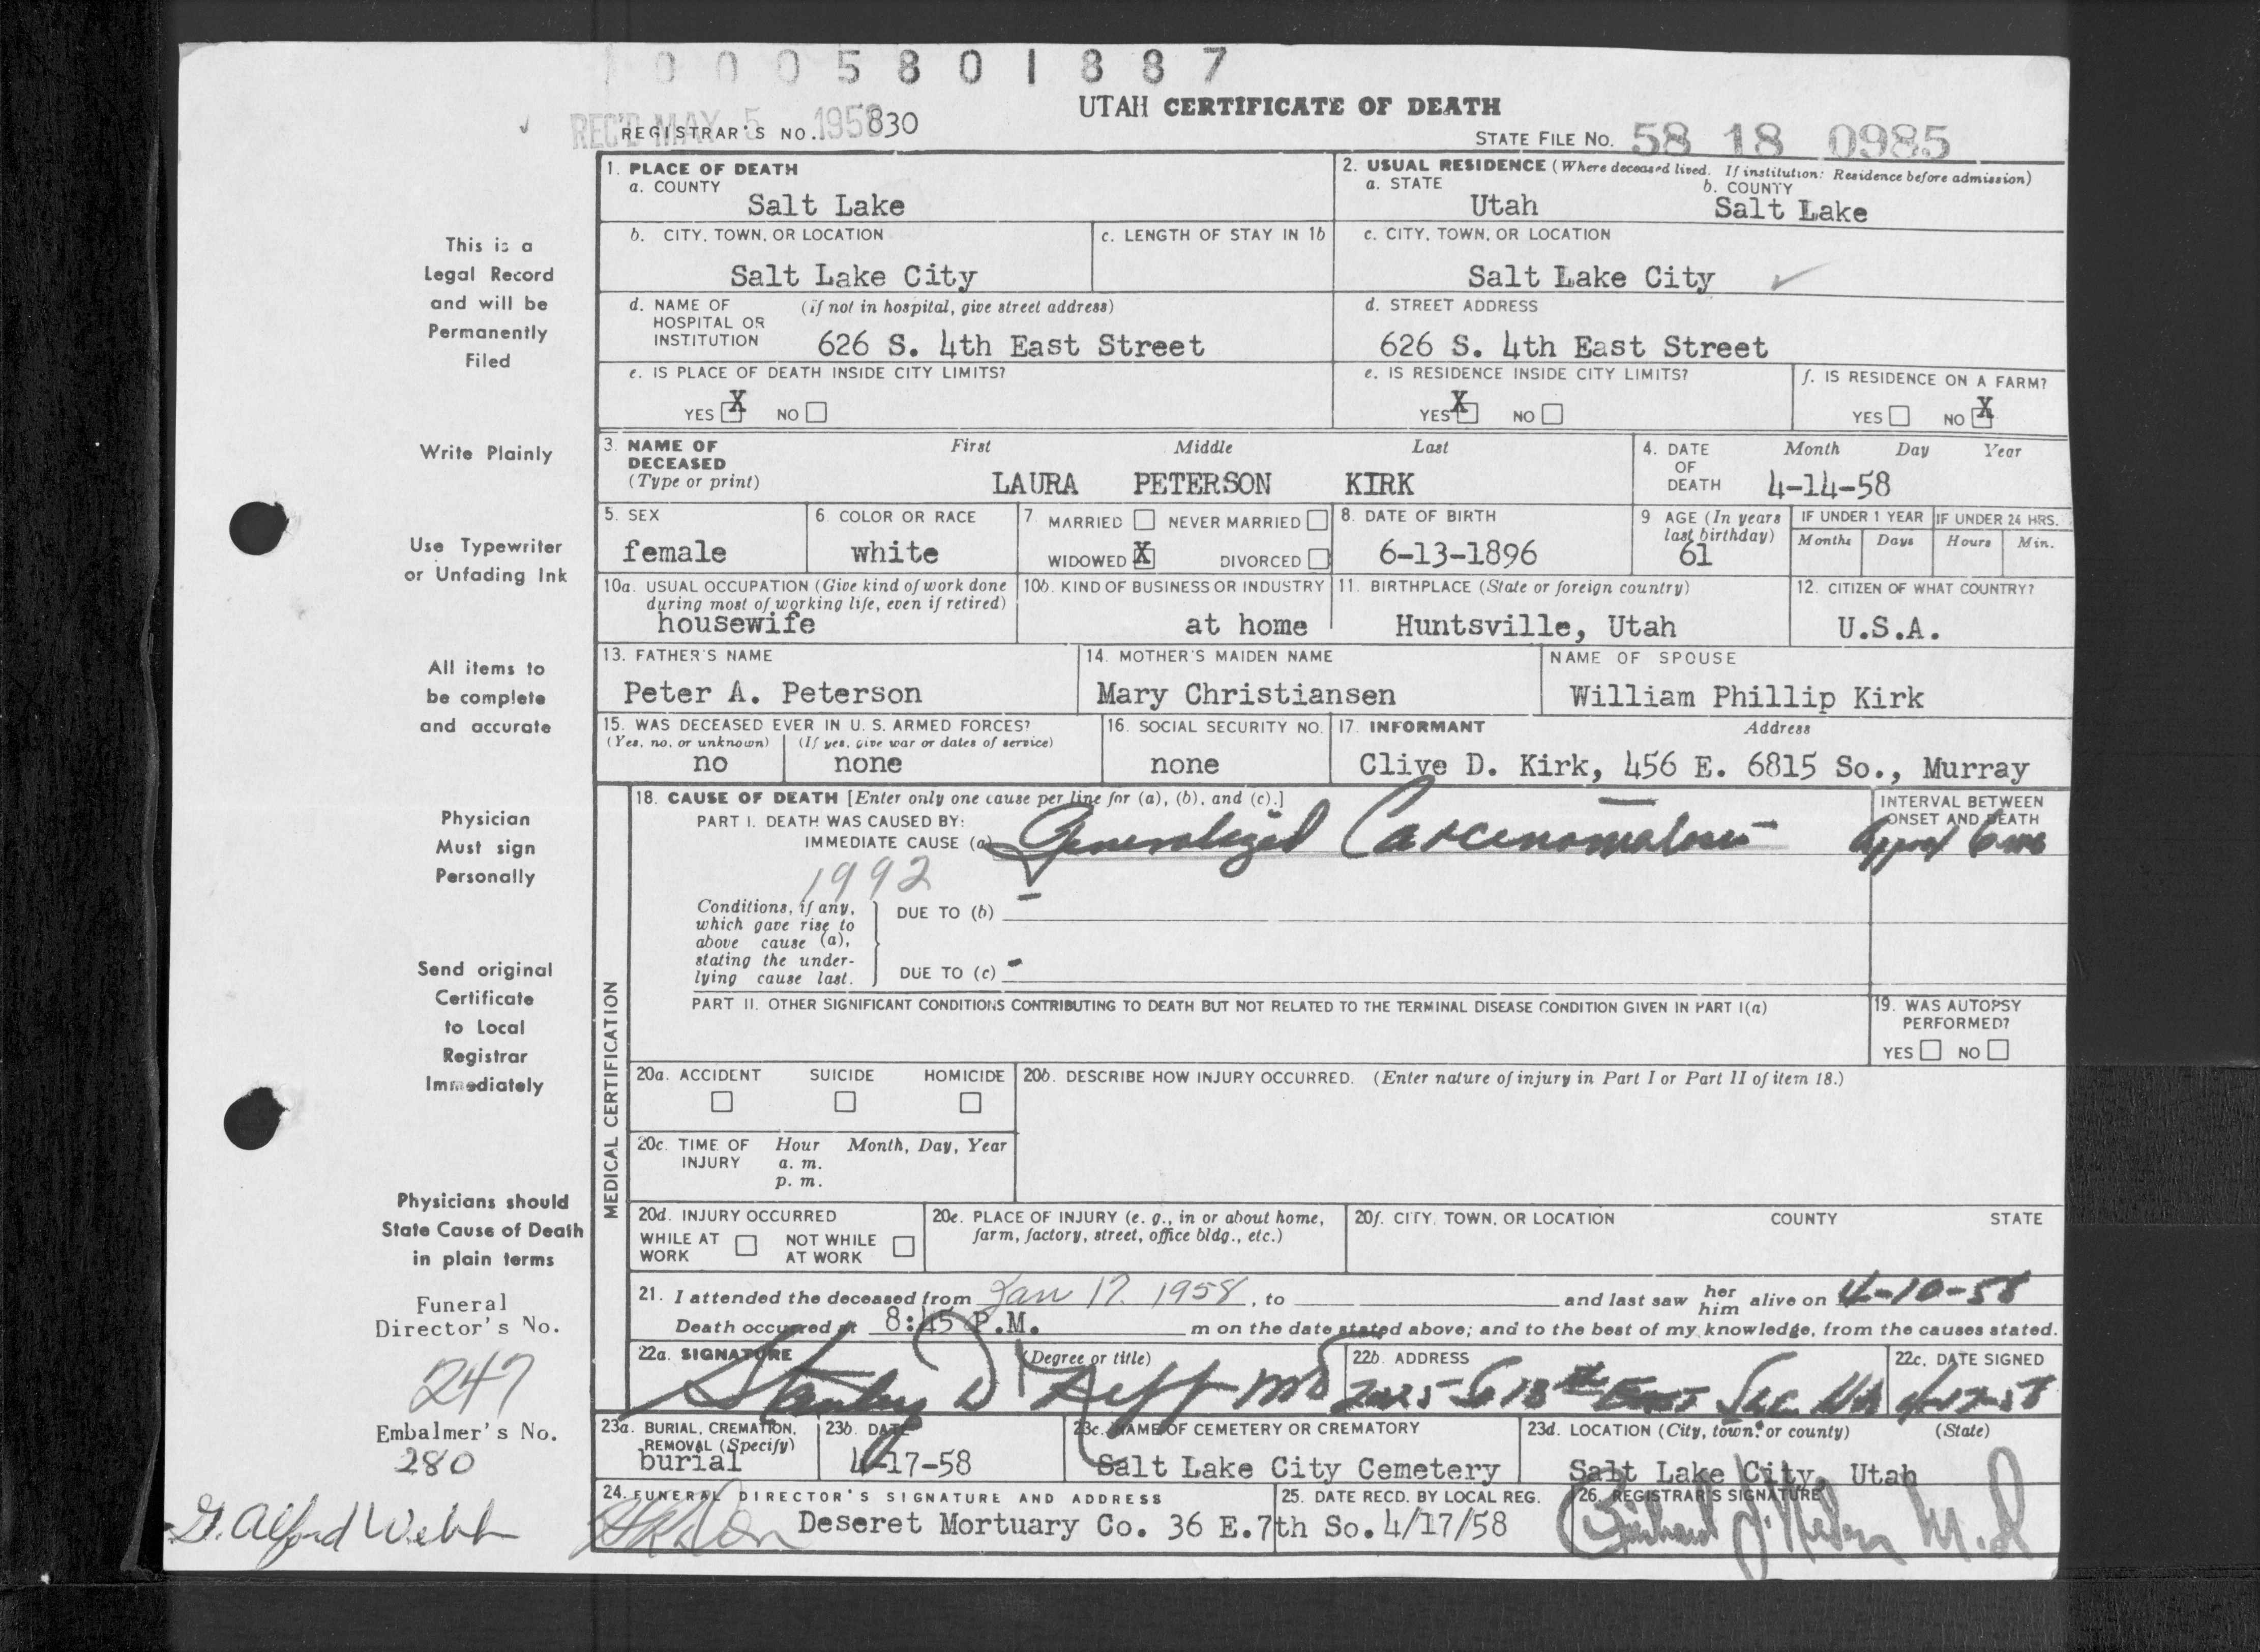 1 0 0 0 5 8 0 1 8 8 7
UTAH CERTIFICATE OF DEATH
REC'D MAY 5 1958
REGISTRAR'S NO. 830
STATE FILE No. 58 18 0985
1. PLACE OF DEATH
a. COUNTY
Salt Lake
2. USUAL RESIDENCE (Where deceased lived. If institution: Residence before admission)
a. STATE
b. COUNTY
Utah Salt Lake
b. CITY, TOWN, OR LOCATION
Salt Lake City
c. LENGTH OF STAY IN 1b
c. CITY, TOWN, OR LOCATION
Salt Lake City
d. NAME OF HOSPITAL OR INSTITUTION (if not in hospital, give street address)
626 S. 4th East Street
d. STREET ADDRESS
626 S. 4th East Street
e. IS PLACE OF DEATH INSIDE CITY LIMITS?
YES X NO
e. IS RESIDENCE INSIDE CITY LIMITS?
YES X NO
f. IS RESIDENCE ON A FARM?
YES NO X
3. NAME OF DECEASED (Type or print)
First Middle Last
LAURA PETERSON KIRK
4. DATE OF DEATH
Month Day Year
4-14-58
5. SEX
female
6. COLOR OR RACE
white
7. MARRIED NEVER MARRIED
WIDOWED X DIVORCED
8. DATE OF BIRTH
6-13-1896
9 AGE (In years last birthday)
61
IF UNDER 1 YEAR
Months Days
IF UNDER 24 HRS.
Hours Min.
10a. USUAL OCCUPATION (Give kind of work done during most of working life, even if retired)
housewife
10b. KIND OF BUSINESS OR INDUSTRY
at home
11. BIRTHPLACE (State or foreign country)
Huntsville, Utah
12. CITIZEN OF WHAT COUNTRY?
U.S.A.
13. FATHER'S NAME
Peter A. Peterson
14. MOTHER'S MAIDEN NAME
Mary Christiansen
NAME OF SPOUSE
William Phillip Kirk
15. WAS DECEASED EVER IN U. S. ARMED FORCES?
(Yes, no, or unknown) (If yes, give war or dates of service)
no none
16. SOCIAL SECURITY NO.
none
17. INFORMANT Address
Clive D. Kirk, 456 E. 6815 So., Murray
MEDICAL CERTIFICATION
18. CAUSE OF DEATH [Enter only one cause per line for (a), (b), and (c).]
PART I. DEATH WAS CAUSED BY:
IMMEDIATE CAUSE (a) Generalized Carcinomatosis
INTERVAL BETWEEN ONSET AND DEATH
approx 6 mo
1992
Conditions, if any, which gave rise to above cause (a), stating the underlying cause last.
DUE TO (b) -
DUE TO (c) -
PART II. OTHER SIGNIFICANT CONDITIONS CONTRIBUTING TO DEATH BUT NOT RELATED TO THE TERMINAL DISEASE CONDITION GIVEN IN PART I(a)
19. WAS AUTOPSY PERFORMED?
YES NO
20a. ACCIDENT SUICIDE HOMICIDE
20b. DESCRIBE HOW INJURY OCCURRED. (Enter nature of injury in Part I or Part II of item 18.)
20c. TIME OF INJURY
Hour Month, Day, Year
a. m.
p. m.
20d. INJURY OCCURRED
WHILE AT WORK NOT WHILE AT WORK
20e. PLACE OF INJURY (e. g., in or about home, farm, factory, street, office bldg., etc.)
20f. CITY, TOWN, OR LOCATION COUNTY STATE
21. I attended the deceased from Jan 17. 1958, to and last saw her him alive on 4-10-58
Death occurred at 8:45 P.M. m on the date stated above; and to the best of my knowledge, from the causes stated.
22a. SIGNATURE (Degree or title)
Stanley MD
22b. ADDRESS
13th East
22c. DATE SIGNED
4-17-58
23a. BURIAL, CREMATION, REMOVAL (Specify)
burial
23b. DATE
4-17-58
23c. NAME OF CEMETERY OR CREMATORY
Salt Lake City Cemetery
23d. LOCATION (City, town, or county) (State)
Salt Lake City, Utah
24. FUNERAL DIRECTOR'S SIGNATURE AND ADDRESS
Deseret Mortuary Co. 36 E.7th So.
25. DATE RECD. BY LOCAL REG.
4/17/58
26. REGISTRAR'S SIGNATURE
M.D
This is a
Legal Record
and will be
Permanently
Filed
Write Plainly
Use Typewriter
or Unfading Ink
All items to
be complete
and accurate
Physician
Must sign
Personally
Send original
Certificate
to Local
Registrar
Immediately
Physicians should
State Cause of Death
in plain terms
Funeral
Director's No.
247
Embalmer's No.
280
G. Alford Webb